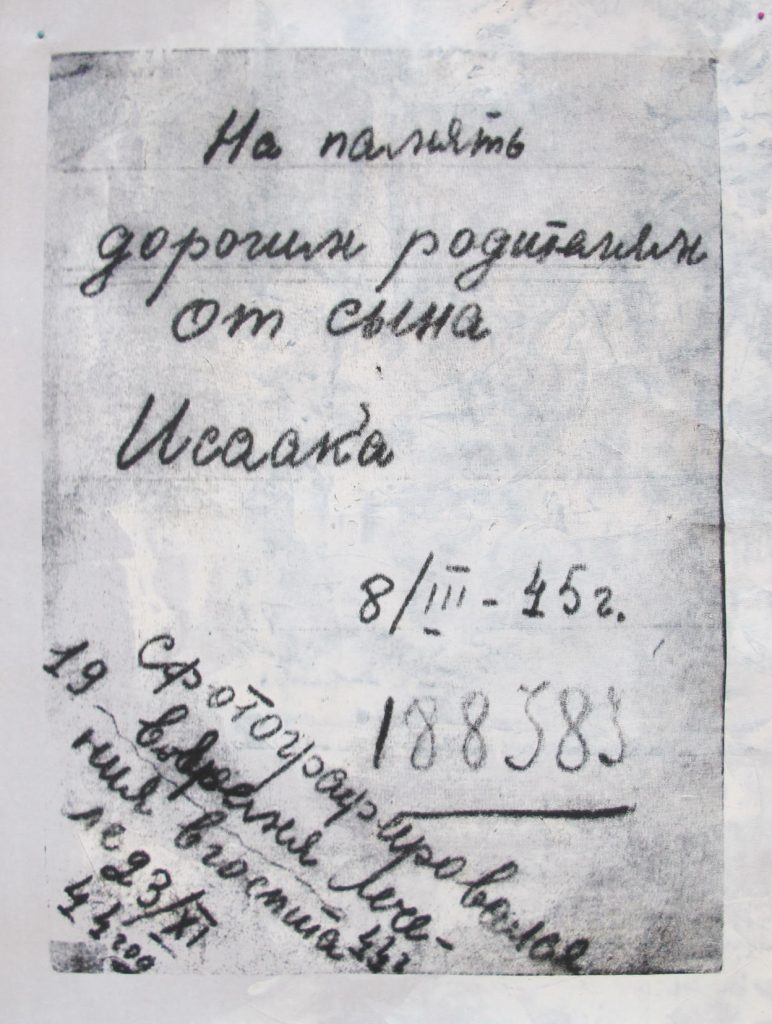 На память
дорогим родителям
от сына
Исаака
8/III - 45 г.
188583
Сфотографировался
19 вовремя лече-
ния в госпита
ле 23/XI 44 г
44 год